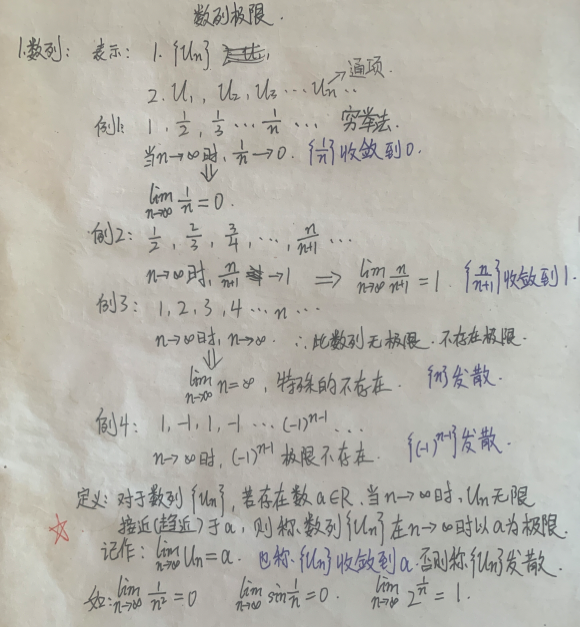 数列极限.
1.数列: 表示: 1. {Un}
2. U1, U2, U3 ⋯ Un ⋯ → 通项.
例1: 1, 1/2, 1/3 ⋯ 1/n ⋯ 穷举法.
当n→∞时, 1/n→0. {1/n}收敛到0.
⇓
lim n→∞ 1/n = 0.
例2: 1/2, 2/3, 3/4, ⋯, n/n+1 ⋯
n→∞时, n/n+1 →1 ⇒ lim n→∞ n/n+1 = 1. {n/n+1}收敛到1.
例3: 1, 2, 3, 4 ⋯ n ⋯
n→∞时, n→∞. ∴此数列无极限. 不存在极限.
⇓
lim n→∞ n=∞, 特殊的不存在. {n}发散.
例4: 1, -1, 1, -1 ⋯ (-1)^{n-1} ⋯
n→∞时, (-1)^{n-1} 极限不存在. {(-1)^{n-1}}发散.
定义: 对于数列{Un}, 若存在数a∈R, 当n→∞时, Un无限
☆ 接近(趋近)于a, 则称数列{Un}在n→∞时以a为极限.
记作: lim n→∞ Un=a. 也称{Un}收敛到a. 否则称{Un}发散.
如: lim n→∞ 1/n² = 0 lim n→∞ sin 1/n = 0. lim n→∞ 2^{1/n} = 1.